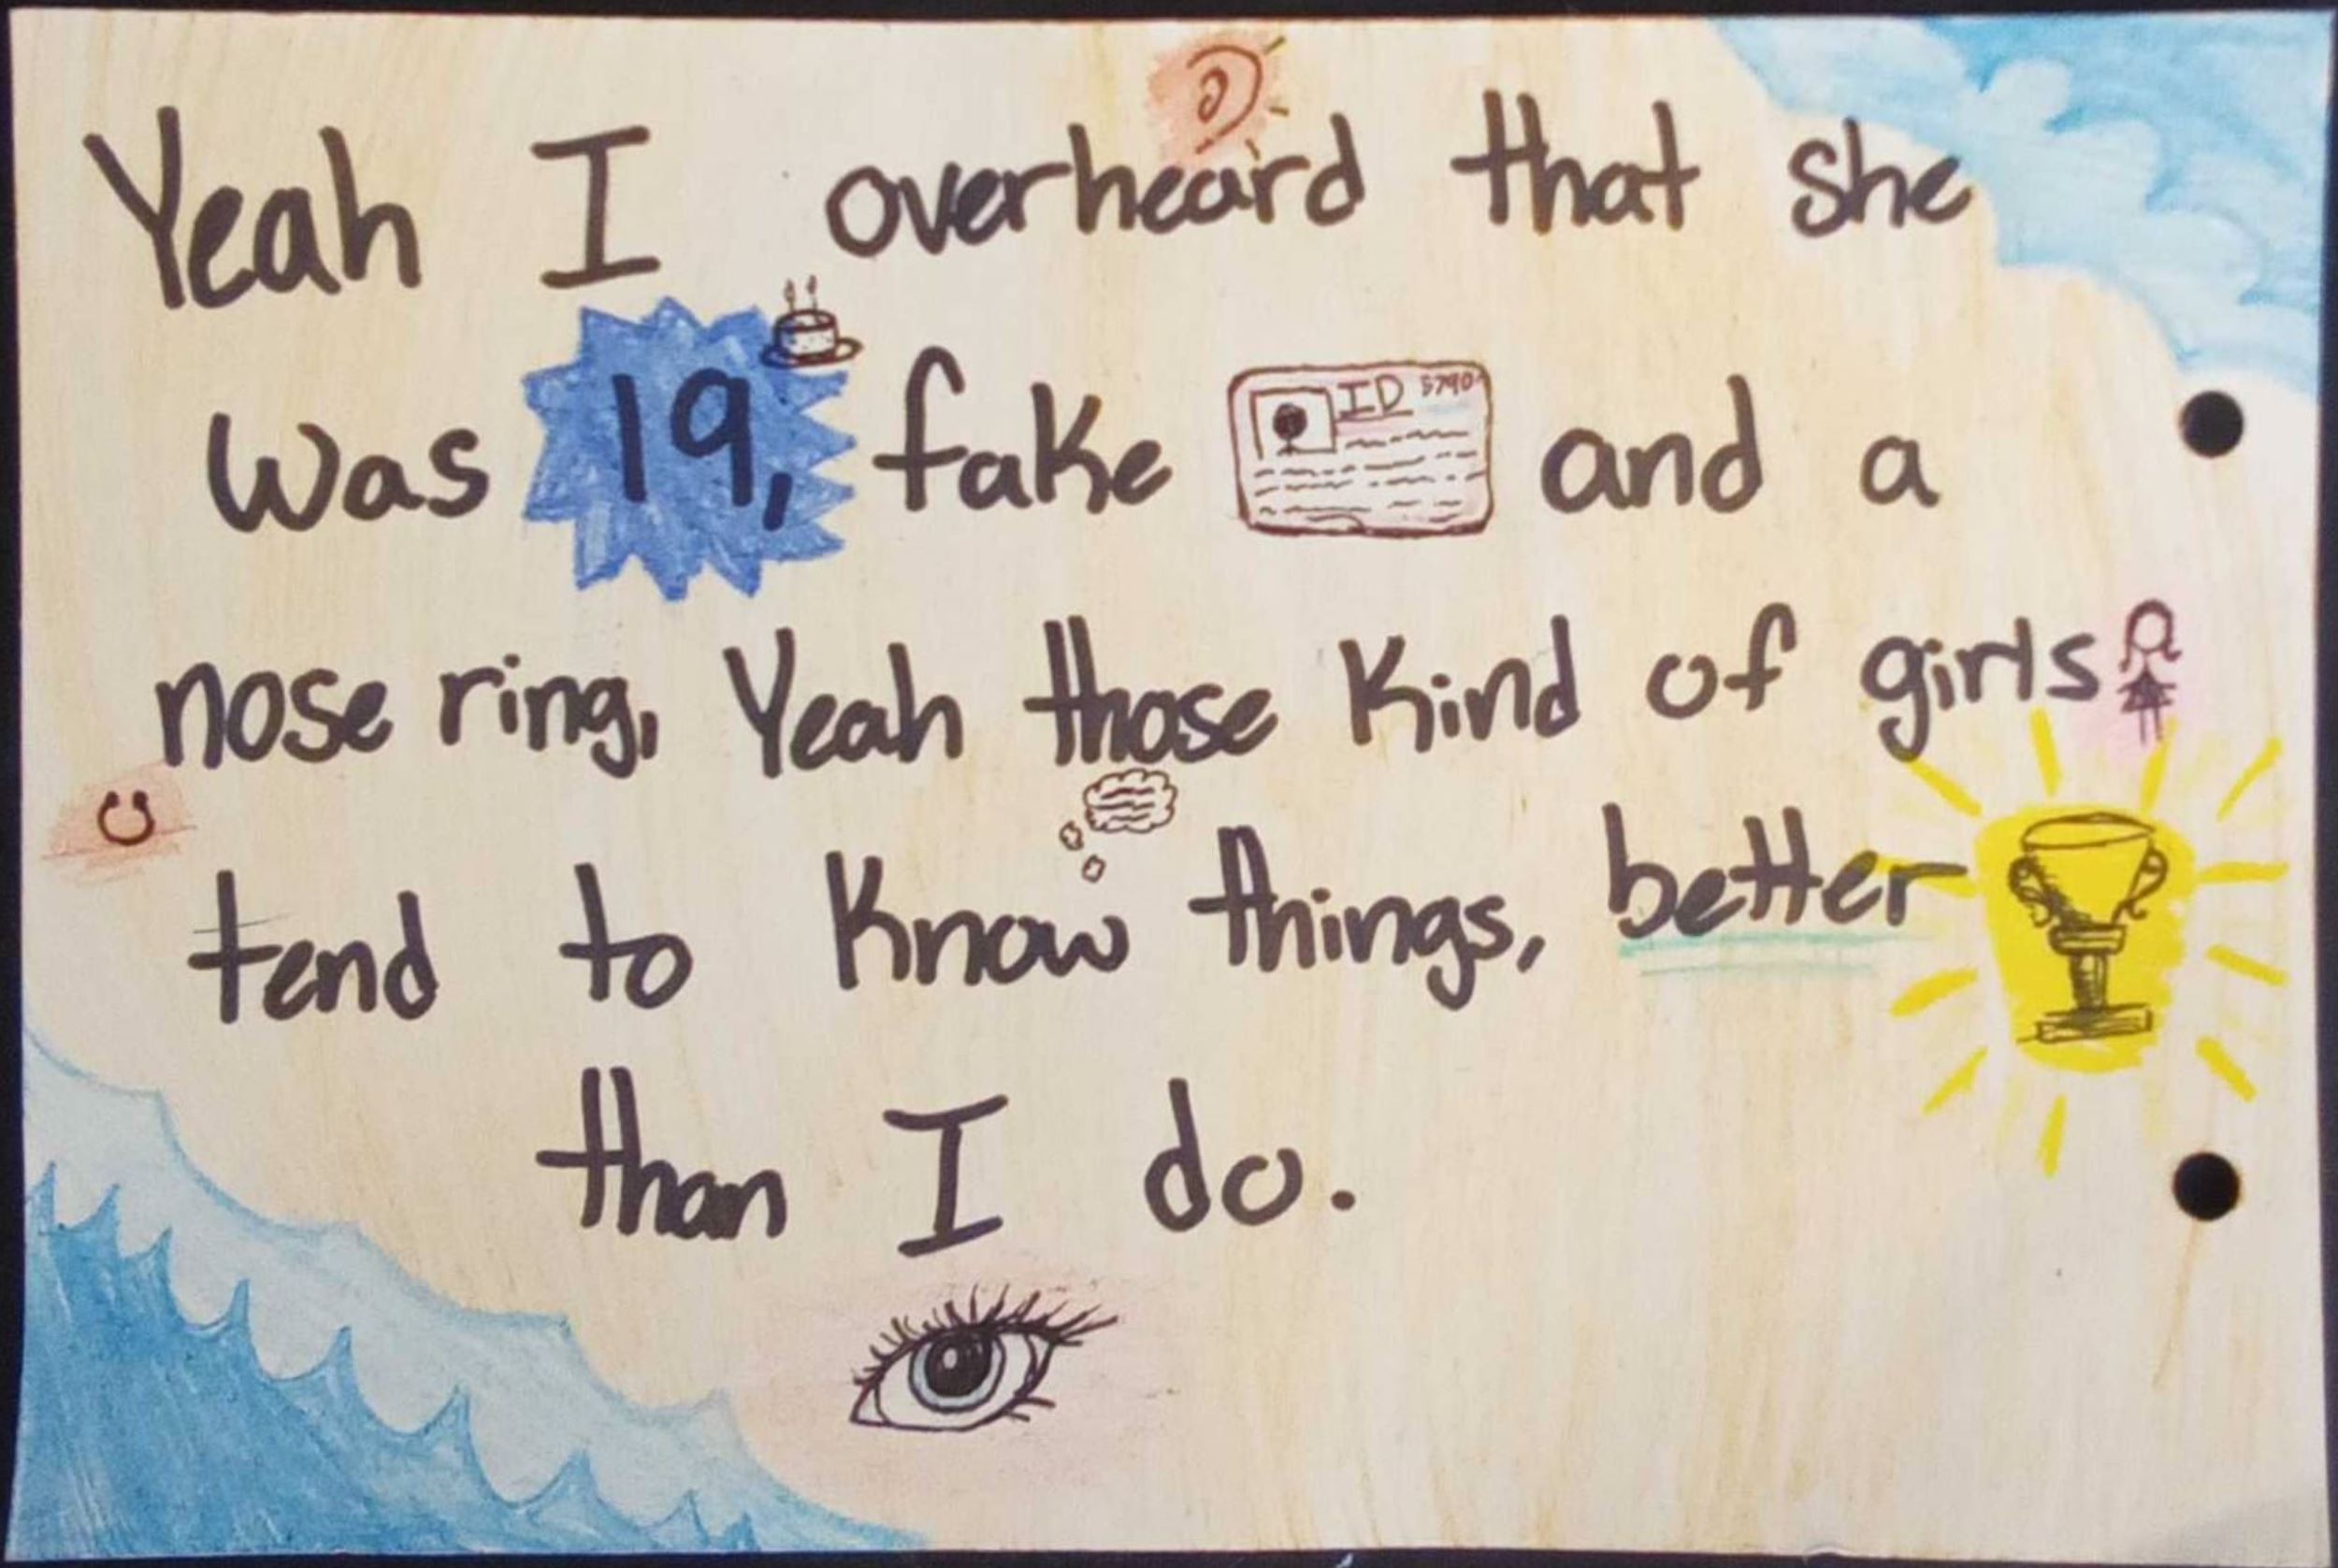 Yeah I overheard that she
was 19, fake ID 5790 and a
nose ring, Yeah those kind of girls
tend to know things, better
than I do.